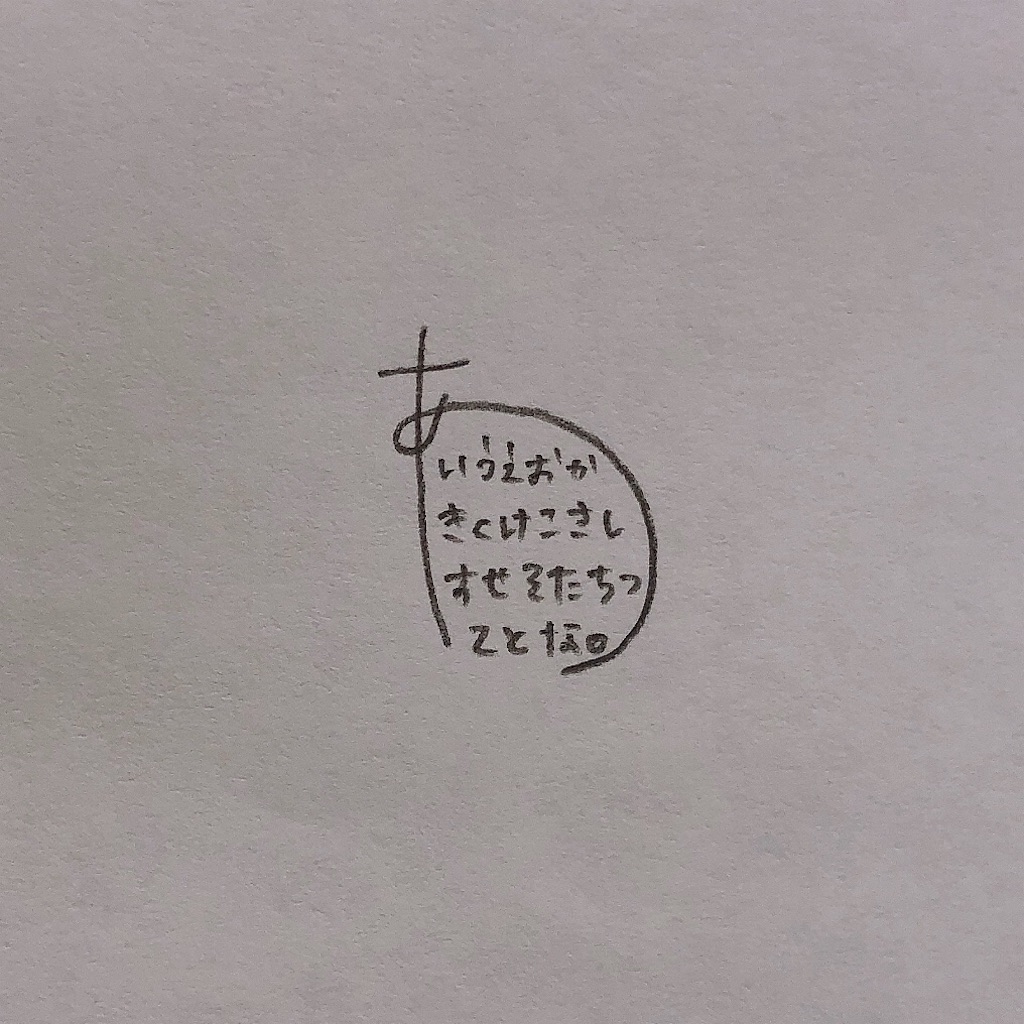 あ
いうえおか
きくけこさし
すせそたちつ
てとな。